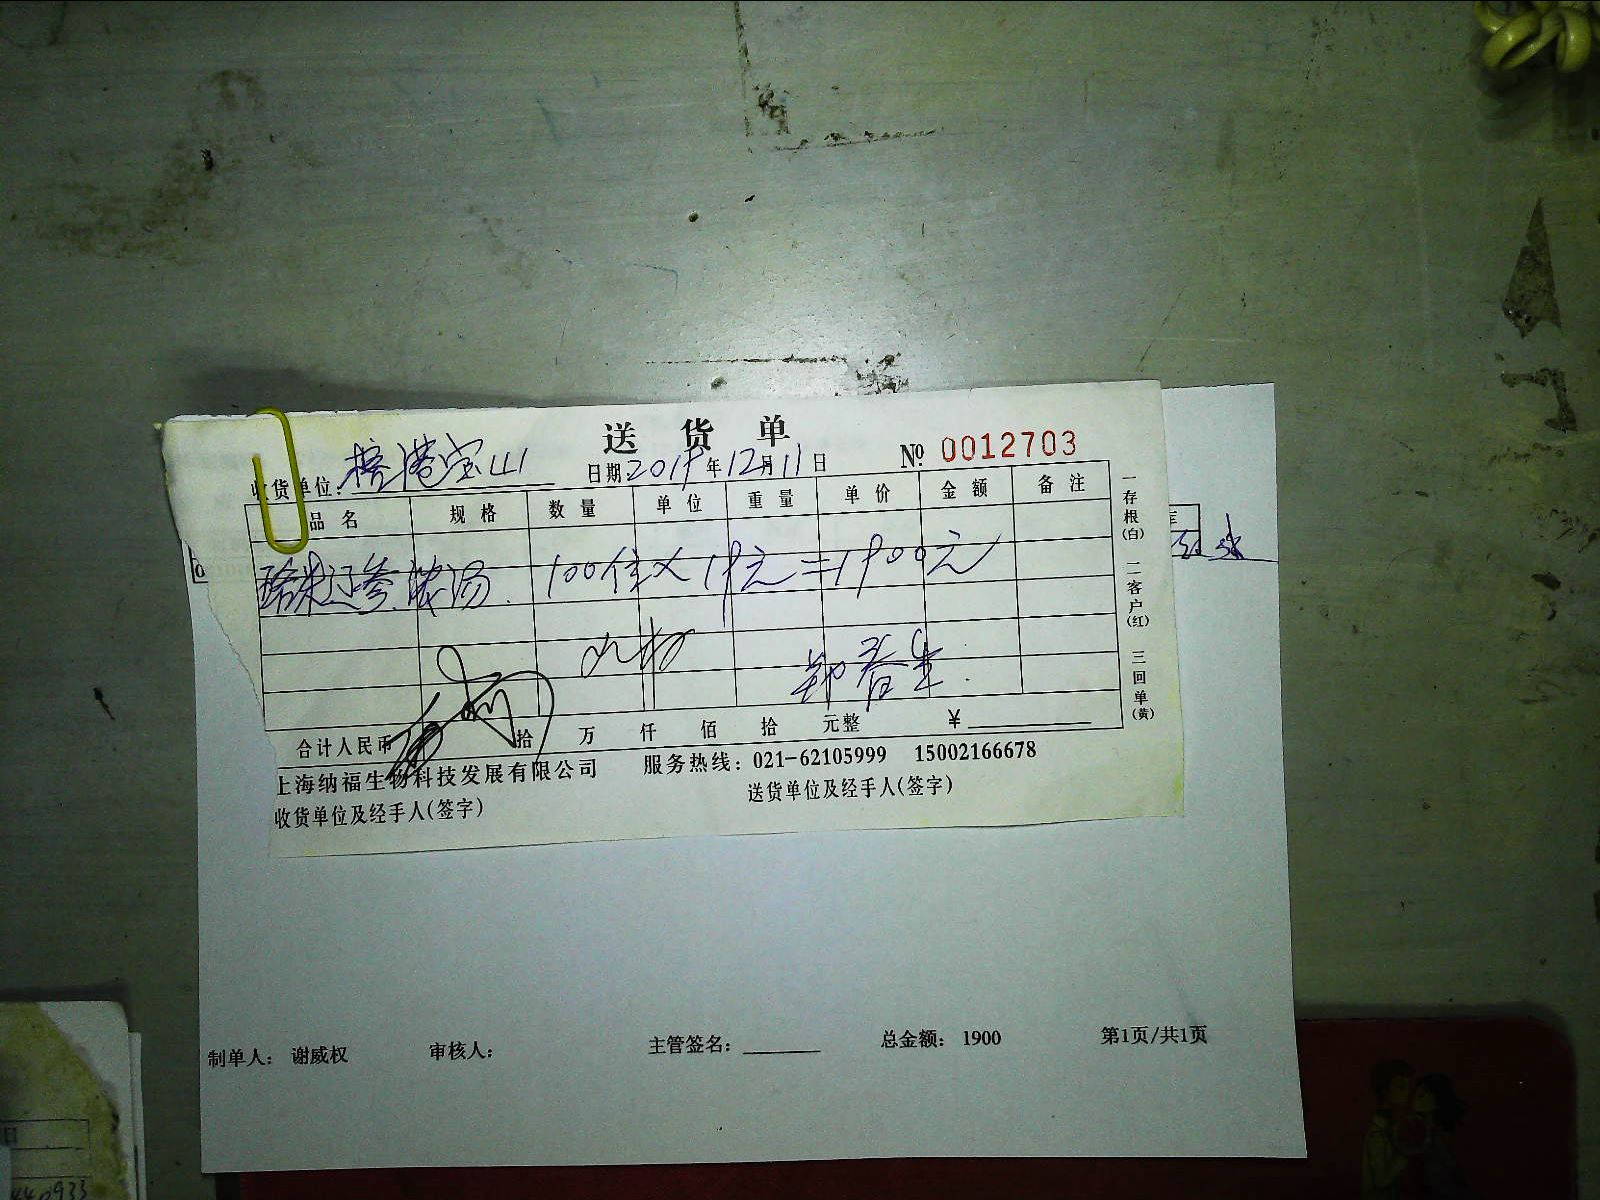 送货单
收货单位: 宝山 日期: 2019年12月11日 № 0012703
品名 规格 数量 单位 重量 单价 金额 备注
辽参浓汤 100位×19元=1900元
郑春生
合计人民币 拾 万 仟 佰 拾 元整 ¥
上海纳福生物科技发展有限公司 服务热线: 021-62105999 15002166678
收货单位及经手人(签字) 送货单位及经手人(签字)
一存根(白) 二客户(红) 三回单(黄)
制单人: 谢威权 审核人: 主管签名: 总金额: 1900 第1页/共1页
日